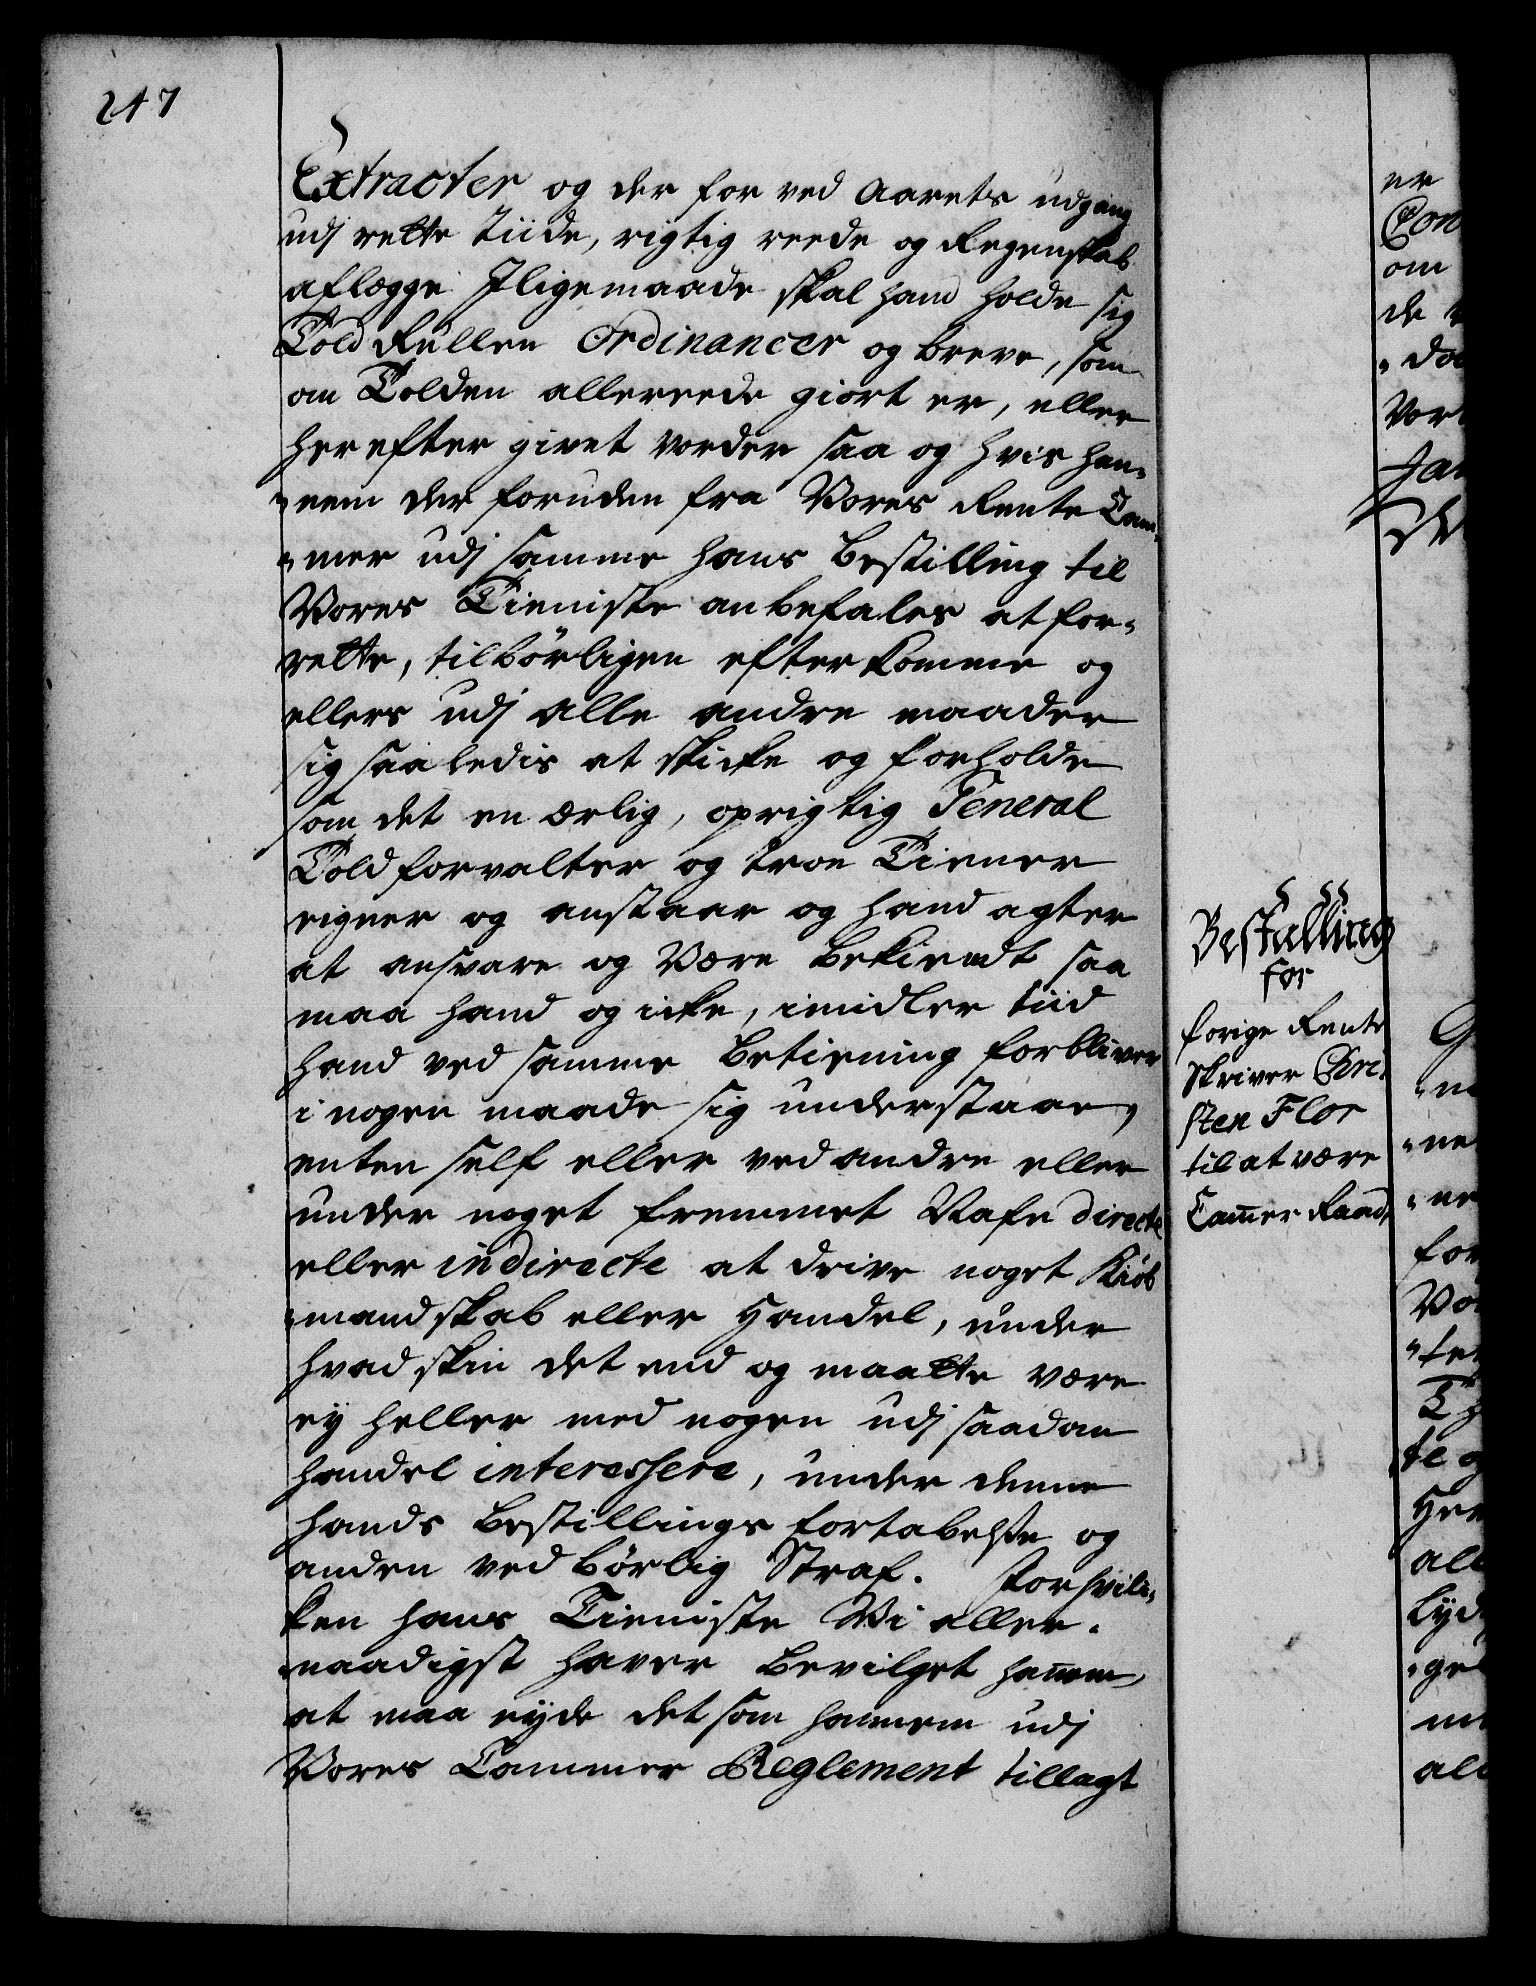 247
Extracter og der for ved Aarets udgang
udj rette Tiide, rigtig reede og Regenskab
aflegge Iligemaade skal hand holde sig
Told Rullen Ordinancer og breve, som
om Tolden allereede giort er, eller
her efter givet vorder saa og hvis han-
nem der foruden fra Vores Rente Cam-
mer udj samme hans bestilling til
Vores Tieniste anbefales at for-
rette, tilbörligen efterkomme og
ellers udj alle andre maader
sig saaledis at skicke og forholde
som det en ærlig, oprigtig General
Toldforvalter og troe Tiener
eigner og anstaar og hand agter
at ansvare og være bekiendt saa
maa hand og icke, imidler tiid
hand ved samme betiening forbliver
i nogen maade sig understaae,
enten self eller ved andre eller
under noget fremmet Nafn directe
eller indirecte at drive noget Kiöb
mandskab eller Handel, under
hvad skin det end og maatte være
ey heller med nogen udj saadan
handel interessere, under denne
hands bestillings fortabelse og
anden ved börlig Straf. For hvil-
ken hans Tieniste Vi aller-
naadigst haver bevilget hannem,
at maa nyde det som hannem udj
Vores Cammer Reglement tillagt
Bestalling
for
forige Rente
Skriver Chri-
sten Flor
til at være
Camer Raad,
er
Con
om
de
Vor
Jan
ne
for
te
all
Lyd
all